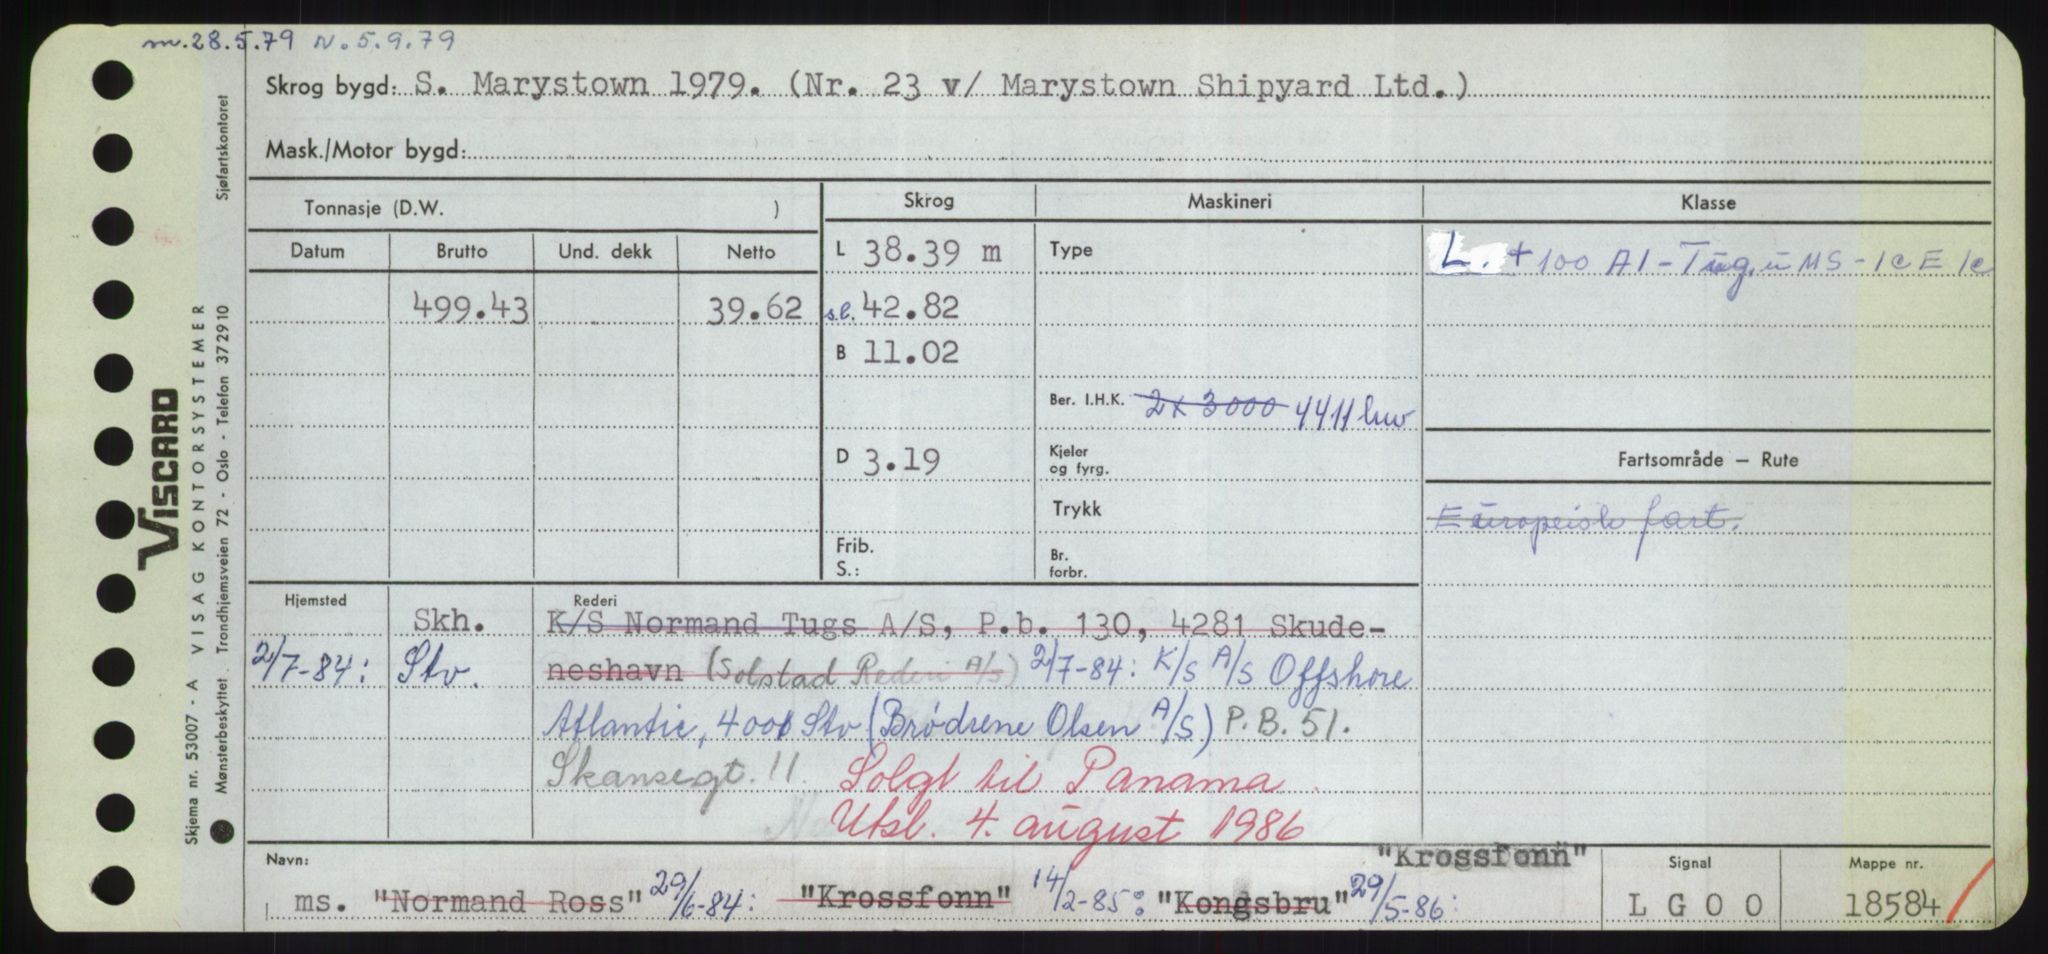 m.28.5.79 N.5.9.79
Skrog bygd: S. Marystown 1979. (Nr. 23 v/ Marystown Shipyard Ltd.)
Mask./Motor bygd:
Tonnasje (D.W. )
Datum Brutto Und. dekk Netto
499.43 39.62
Skrog
L 38.39 m
s.l. 42.82
B 11.02
D 3.19
Frib.
S.:
Maskineri
Type
Ber. I.H.K. 2x3000 4411 hw
Kjeler
og fyrg.
Trykk
Br.
forbr.
Klasse
L. + 100 A1 - Tug, u MS - 1c E 1c
Fartsområde – Rute
Europeisk fart.
Hjemsted
Skh.
2/7-84: Stv.
Rederi
K/S Normand Tugs A/S, P.b. 130, 4281 Skude-
neshavn (Solstad Rederi A/S) 2/7-84: K/S A/S Offshore
Atlantic, 4001 Stv (Brødrene Olsen A/S) P.B. 51.
Skansegt. 11. Solgt til Panama.
Utsl. 4. august 1986
Navn:
ms. "Normand Ross" 29/6-84: "Krossfonn" 14/2-85: "Kongsbru" 29/5-86:
"Krossfonn"
Signal
LGOO
Mappe nr.
18584
Sjøfartskontoret
VISCARD
VISAG KONTORSYSTEMER
Skjema nr. 53007 - A
Mønsterbeskyttet . Trondhjemsveien 72 - Oslo - Telefon 372910